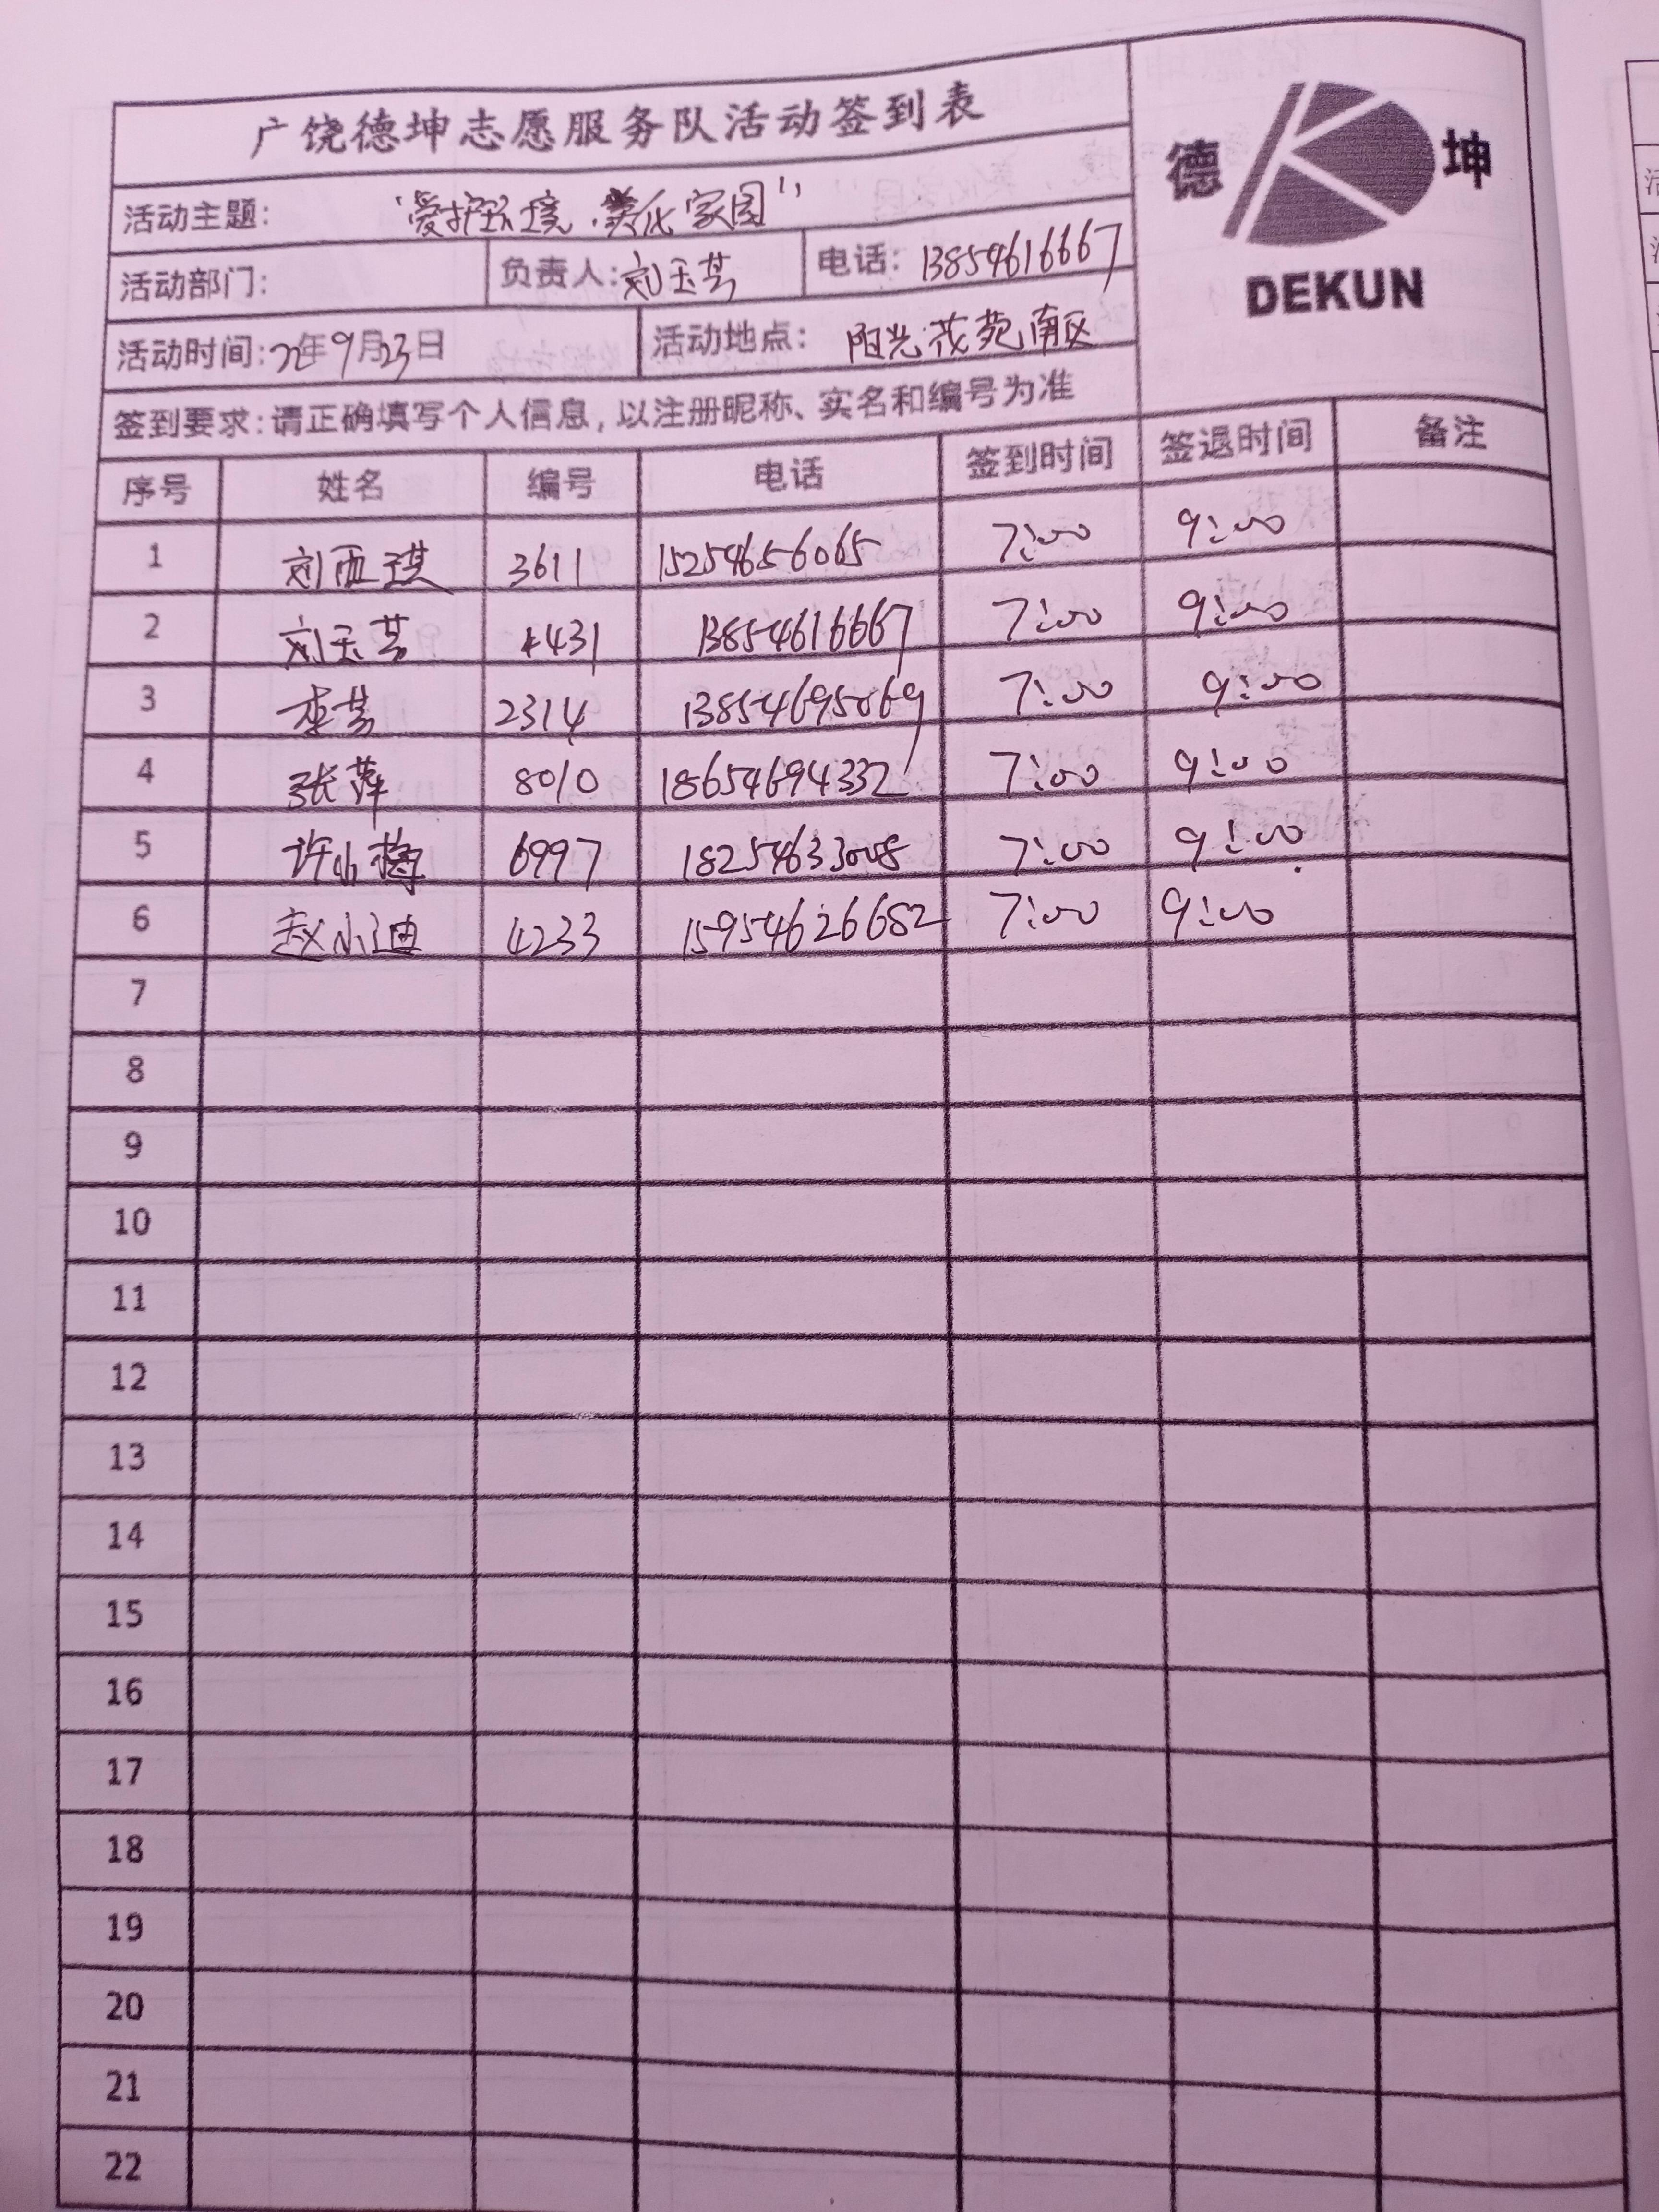 广饶德坤志愿服务队活动签到表
德 坤
DEKUN
活动主题: "爱护环境,美化家园"
活动部门: 负责人: 刘玉芸 电话: 13854616667
活动时间: 22年9月23日 活动地点: 阳光花苑南区
签到要求: 请正确填写个人信息, 以注册昵称、实名和编号为准
序号 姓名 编号 电话 签到时间 签退时间 备注
1 刘亚琪 3611 15254656065 7:00 9:00
2 刘玉芸 4431 13854616667 7:00 9:00
3 李芸 2314 7:00 9:00
4 张萍 8010 18654694332 7:00 9:00
5 许小梅 6997 7:00 9:00
6 赵小迪 4233 15954626682 7:00 9:00
7
8
9
10
11
12
13
14
15
16
17
18
19
20
21
22